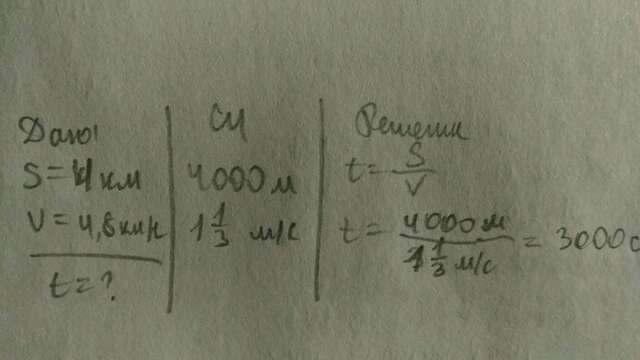 Дано:
S = 4 км
V = 4,8 км/ч
t = ?
СИ
4000 м
1 1/3 м/с
Решение
t = S/V
t = 4000 м / 1 1/3 м/с = 3000 с